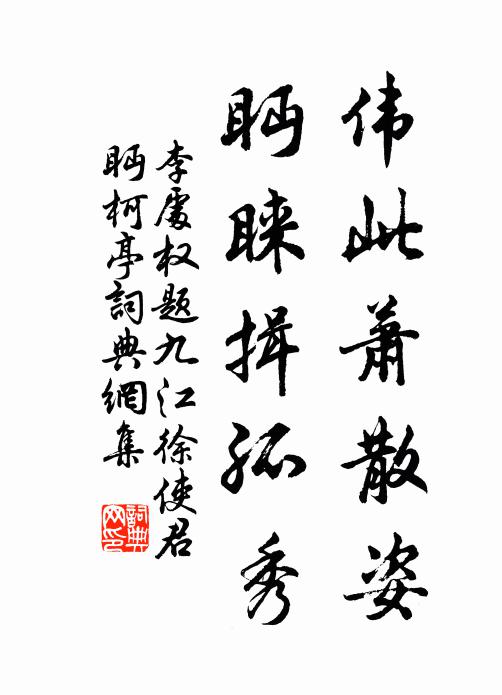 伟此萧散姿
眄睐揖孤秀
李处权题九江徐使君
眄柯亭詞典網集
詞典
网印